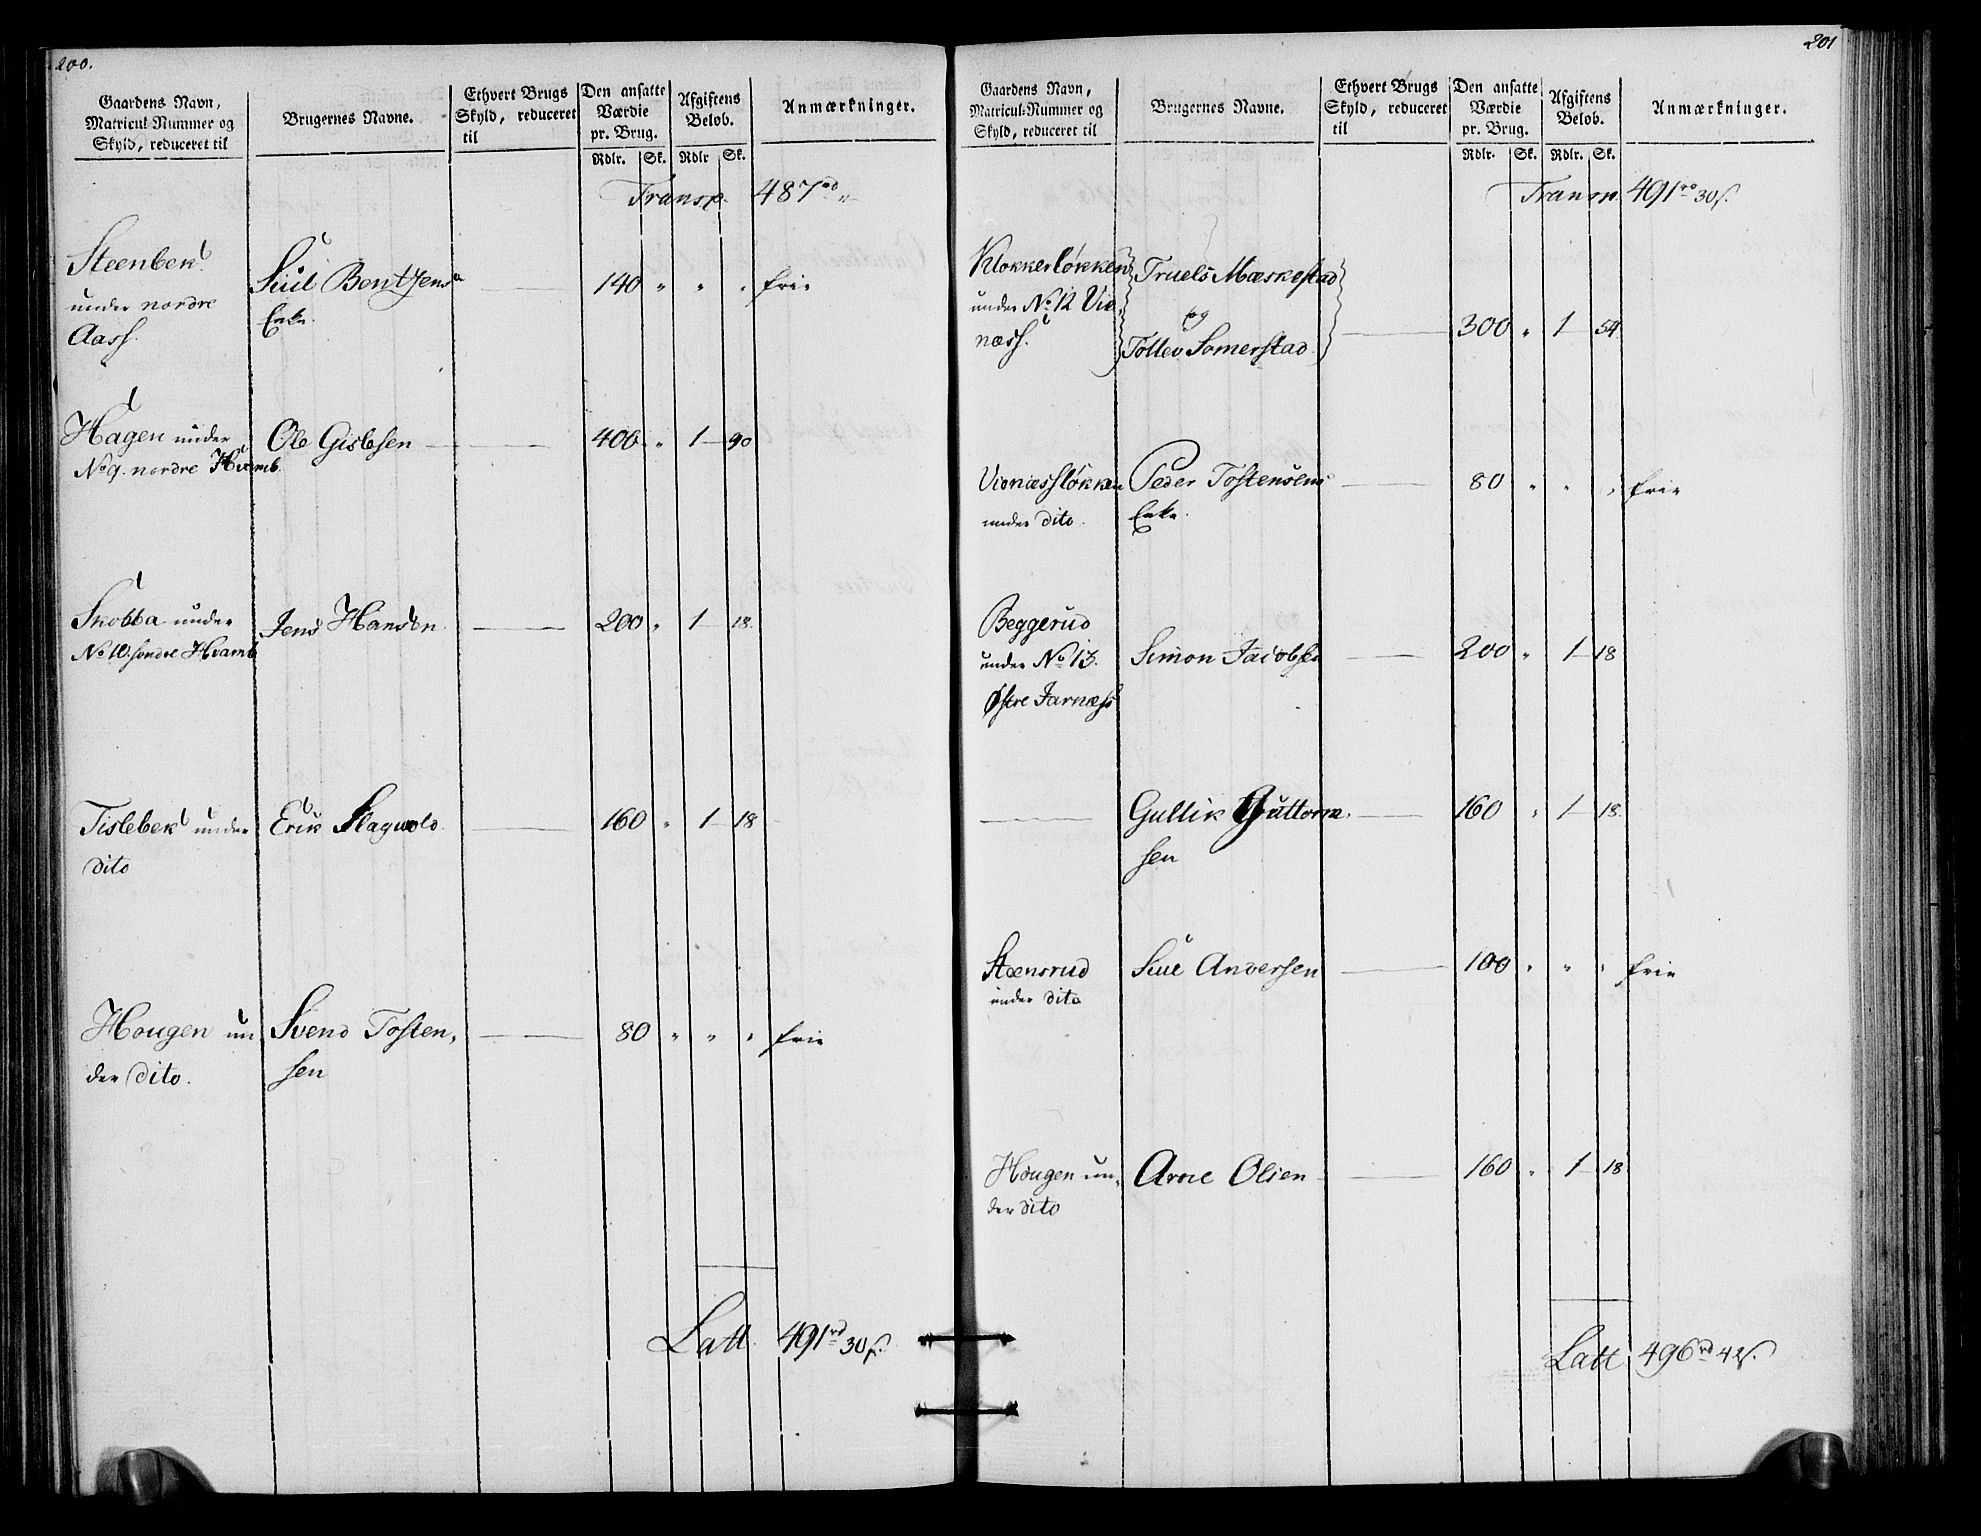 200.
Gaardens Navn, Matricul-Nummer og Skyld, reduceret til
Brugernes Navne.
Ethvert Brugs Skyld, reduceret til
Den ansatte Værdie pr. Brug.
Afgiftens Beløb.
Anmærkninger.
Rdlr. Sk. Rdlr Sk.
Transp. 487 rd "
Steenbek
Siul Bentsens 140 " " " frie
under nordre
Enke.
Aass.
Hagen under Ole Gislesen 400 " 1 90
No 9. nordre Hvamb
Skobba under Jens Hansen 200 " 1 18.
No 10. søndre Hvamb
Tislebek under Erik Slagvold 160 " 1 18
dito
Hougen un Svend Tosten, 80 " " " frie
der dito. sen
Latt. 491 rd 30 s.
201
Gaardens Navn, Matricul-Nummer og Skyld, reduceret til
Brugernes Navne.
Ethvert Brugs Skyld, reduceret til
Den ansatte Værdie pr. Brug.
Afgiftens Beløb.
Anmærkninger.
Rdlr. Sk. Rdlr. Sk.
Transp. 491 rd 30 s.
Klokkerløkken Truels Mæskestad
under No 12 Vio,
og
næss. Tollev Somerstad 300 " 1 54
Vionæssløkken Peder Tostensens 80 " " " frie
under dito. Enke.
Beggerud
under No 13. Simon Jacobsen 200 " 1 18
Østre Jarnæss
Gullik Guttorm, 160 " 1 18.
sen
Steensrud Siul Andersen 100 " " " frie
under dito
Hougen un, Arne Olsen 160 " 1 18
der dito
Latt 496 rd 42 s.